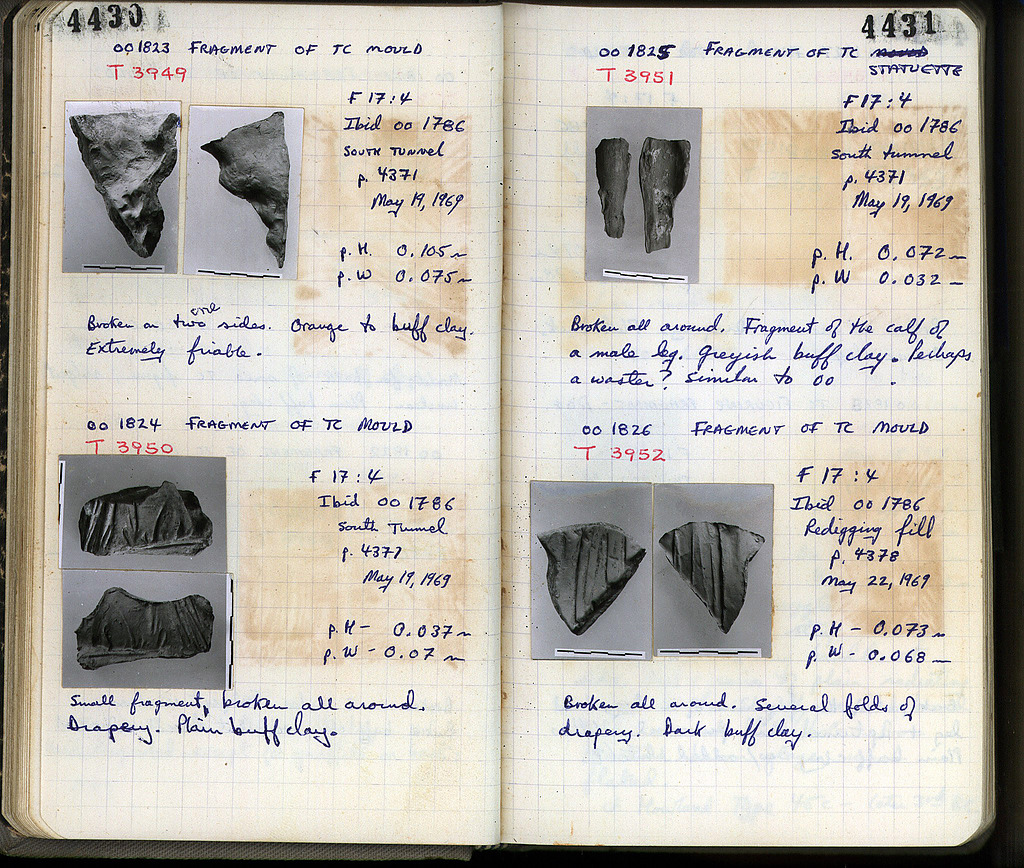 4430
OO 1823 FRAGMENT OF TC MOULD
T 3949
F 17:4
Ibid OO 1786
SOUTH TUNNEL
p. 4371
May 19, 1969
p. H. 0.105 m
p. W 0.075 m
one
Broken on two sides. Orange to buff clay.
Extremely friable.
OO 1824 FRAGMENT OF TC MOULD
T 3950
F 17:4
Ibid OO 1786
South Tunnel
p. 4377
May 19, 1969
p. H - 0.037 m
p. W - 0.07 m
Small fragment, broken all around.
Drapery. Plain buff clay.
4431
OO 1825 FRAGMENT OF TC MOULD
STATUETTE
T 3951
F 17:4
Ibid OO 1786
South tunnel
p. 4371
May 19, 1969
p. H. 0.072 m
p. W 0.032 m
Broken all around. Fragment of the calf of
a male leg. Greyish buff clay. Perhaps
a waster? Similar to OO .
OO 1826 FRAGMENT OF TC MOULD
T 3952
F 17:4
Ibid OO 1786
Redigging fill
p. 4378
May 22, 1969
p. H - 0.073 m
p. W - 0.068 m
Broken all around. Several folds of
drapery. Dark buff clay.